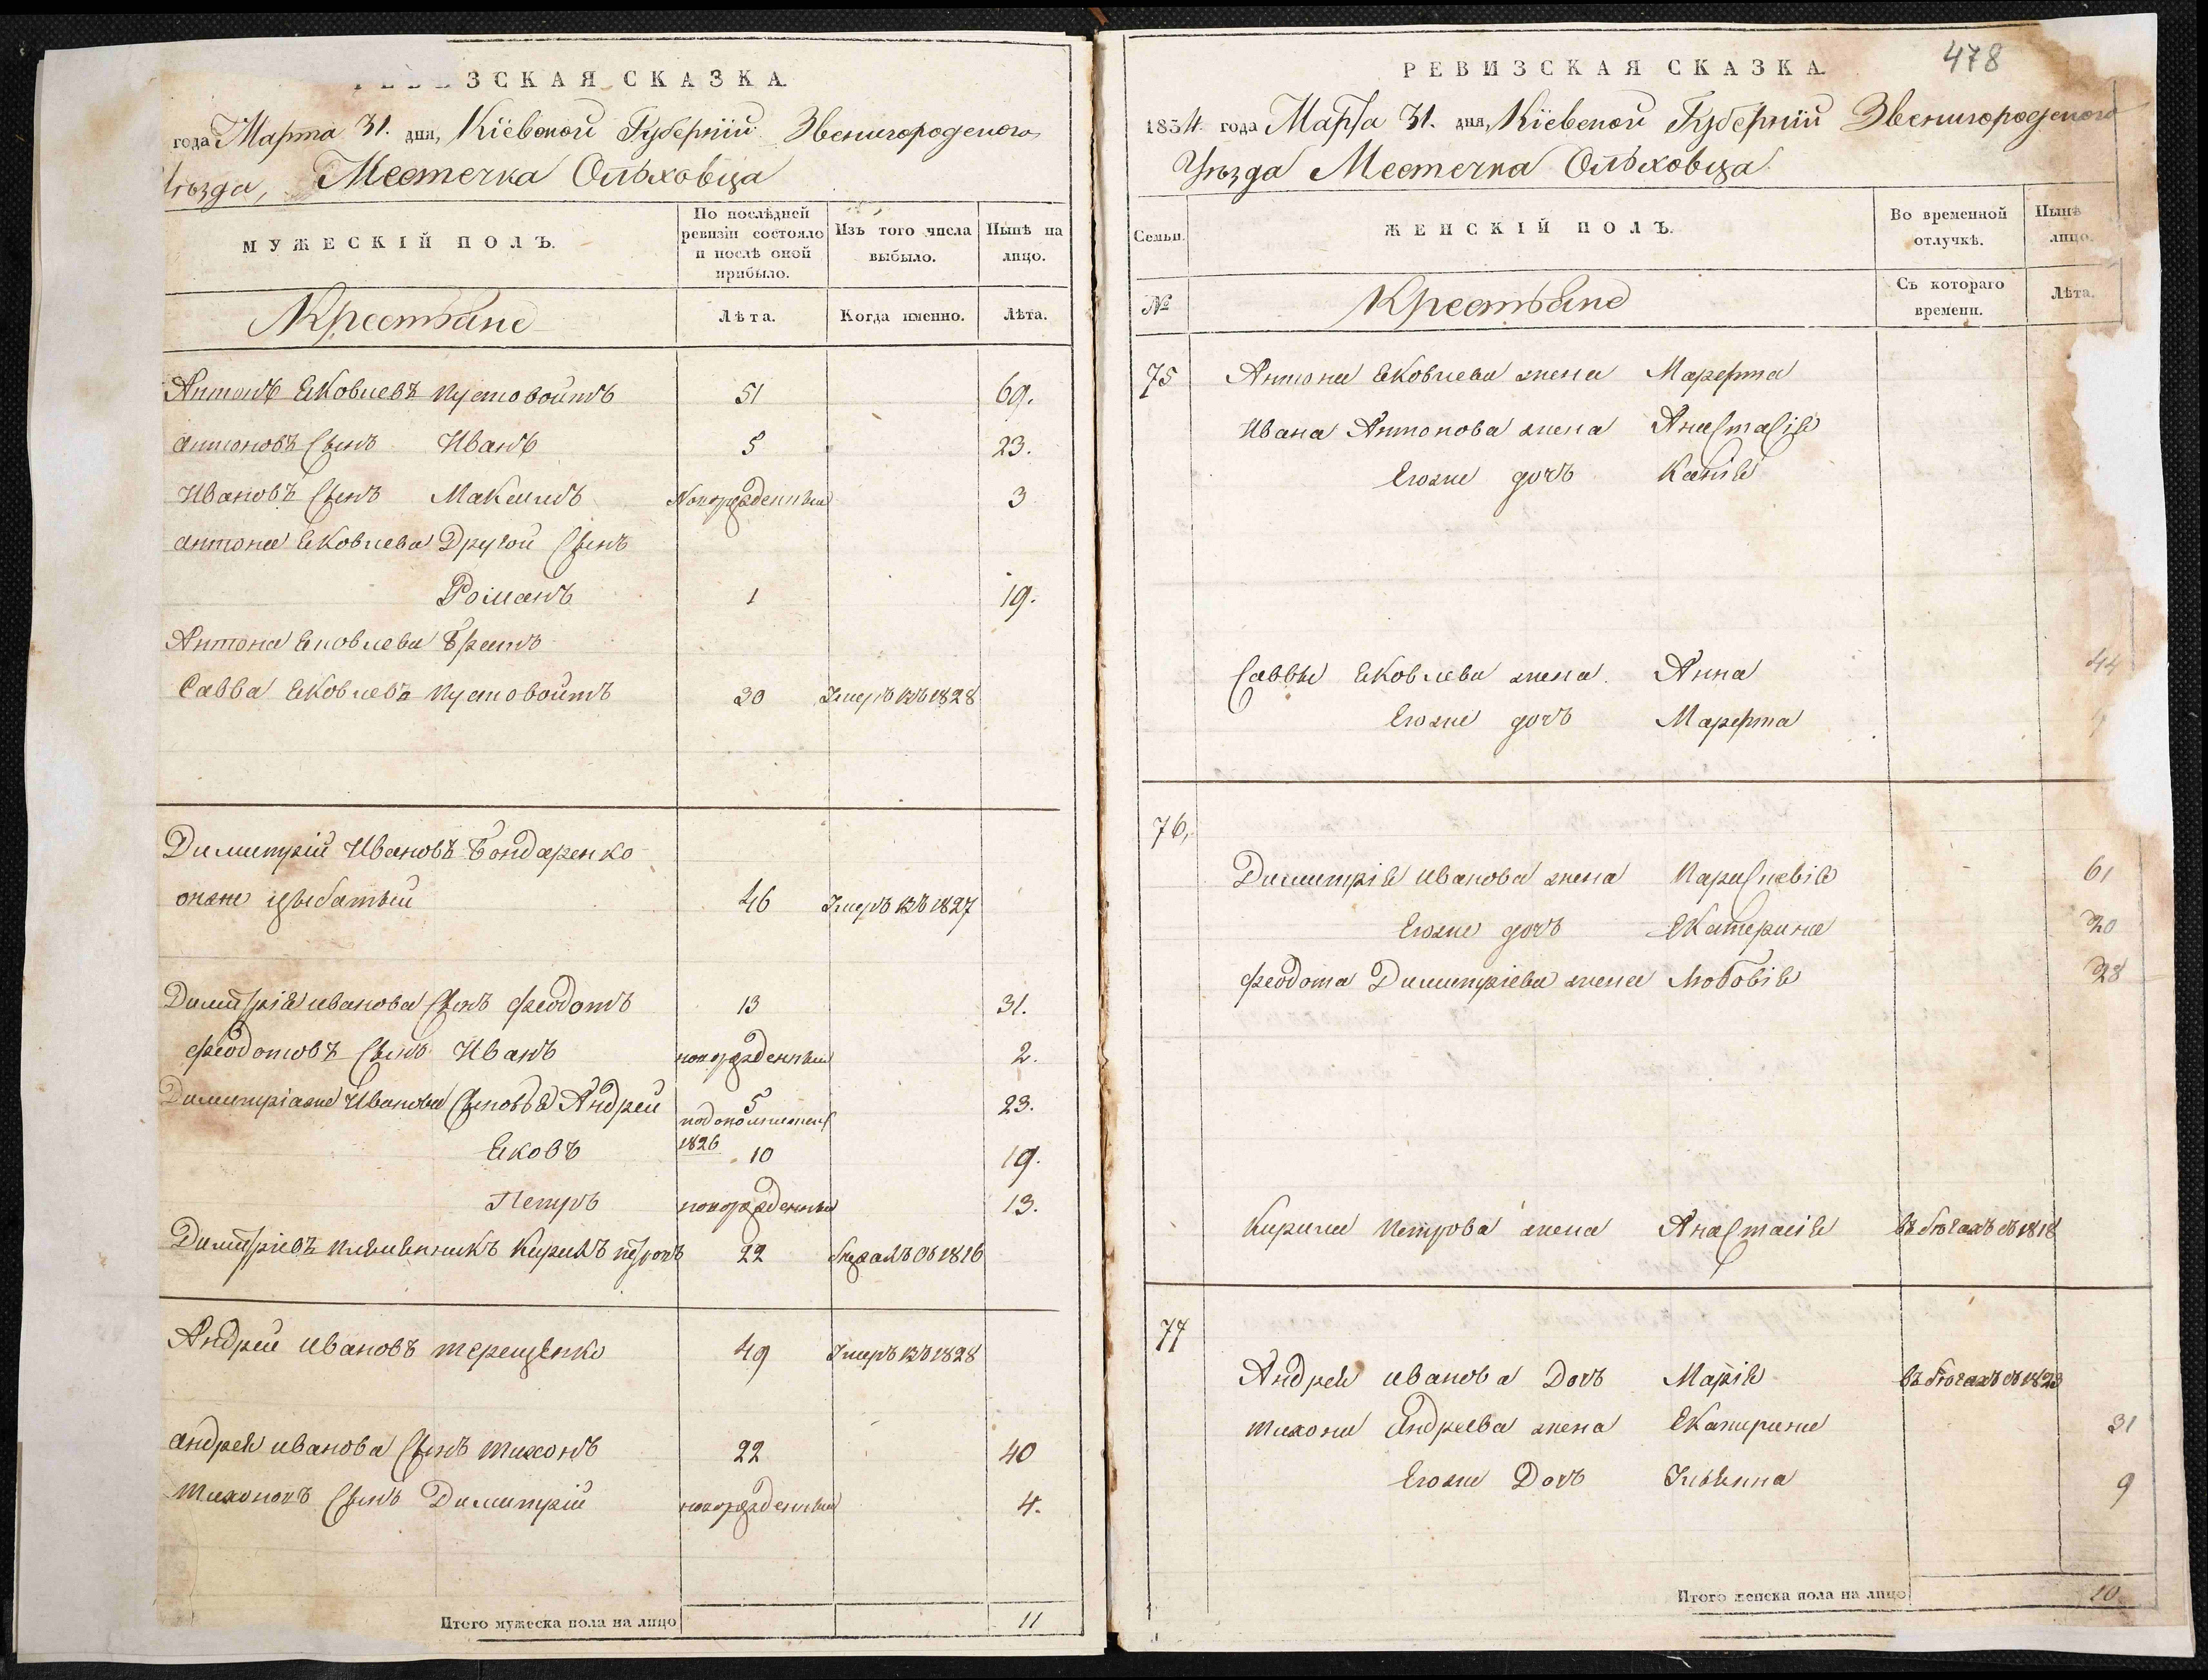 ЗСКАЯ СКАЗКА
года Марта 31. дня, Кіевской Губерніи Звенигородского
Уѣзда, Местечка Ольховца
МУЖЕСКІЙ ПОЛЪ.
По послѣдней
ревизіи состояло
и послѣ оной
прибыло.
Изъ того числа
выбыло.
Нынѣ на
лицо.
Крестьяне
Лѣта.
Когда именно.
Лѣта.
Антонъ Яковлевъ Пустовойтъ 51 69.
Антоновъ Сынъ Иванъ 5 23.
Ивановъ Сынъ Максимъ Новорожденный 3
Антона Яковлева Другой Сынъ
Романъ 1 19.
Антона Яковлева Братъ
Савва Яковлевъ Пустовойтъ 30 Умеръ въ 1828
Димитрій Ивановъ Бондаренко
онже Цыбатый 46 Умеръ въ 1827
Димитрія Иванова Сынъ Феодотъ 13 31.
Феодотовъ Сынъ Иванъ новорожденный 2.
Димитріяже Иванова Сыновья Андрей 5 23.
1826
Яковъ 10 19.
Петръ новорожденный 13.
Димитріевъ племянникъ Кирилъ Петровъ 22 бежалъ въ 1816
Андрей Ивановъ Терещенко 49 Умеръ въ 1828
Андрея Иванова Сынъ Тихонъ 22 40
Тихоновъ Сынъ Димитрій новорожденный 4.
Итого мужеска пола на лицо 11
478
РЕВИЗСКАЯ СКАЗКА
1834 года Марта 31. дня, Кіевской Губерніи Звенигородского
Уѣзда Местечка Ольховца
Семьи.
ЖЕНСКІЙ ПОЛЪ.
Во временной
отлучкѣ.
Нынѣ
лицо.
№
Крестьяне
Съ котораго
времени.
Лѣта.
75 Антона Яковлева жена Марфта
Ивана Антонова жена Анастасія
Егоже дочь Ксенія
Саввы Яковлева жена Анна 44
Егоже дочь Марфта
76,
Димитрія Иванова жена Параскевія 61
Егоже дочь Екатерина 20
Феодота Димитріева жена Любовія 28
Кирила Петрова жена Анастасія въ бѣгахъ съ 1818
77
Андрея Иванова Дочь Марія въ бѣгахъ съ 1823
Тихона Андреева жена Екатирина 31
Егоже Дочь Ульянна 9
Итого женска пола на лицо 10